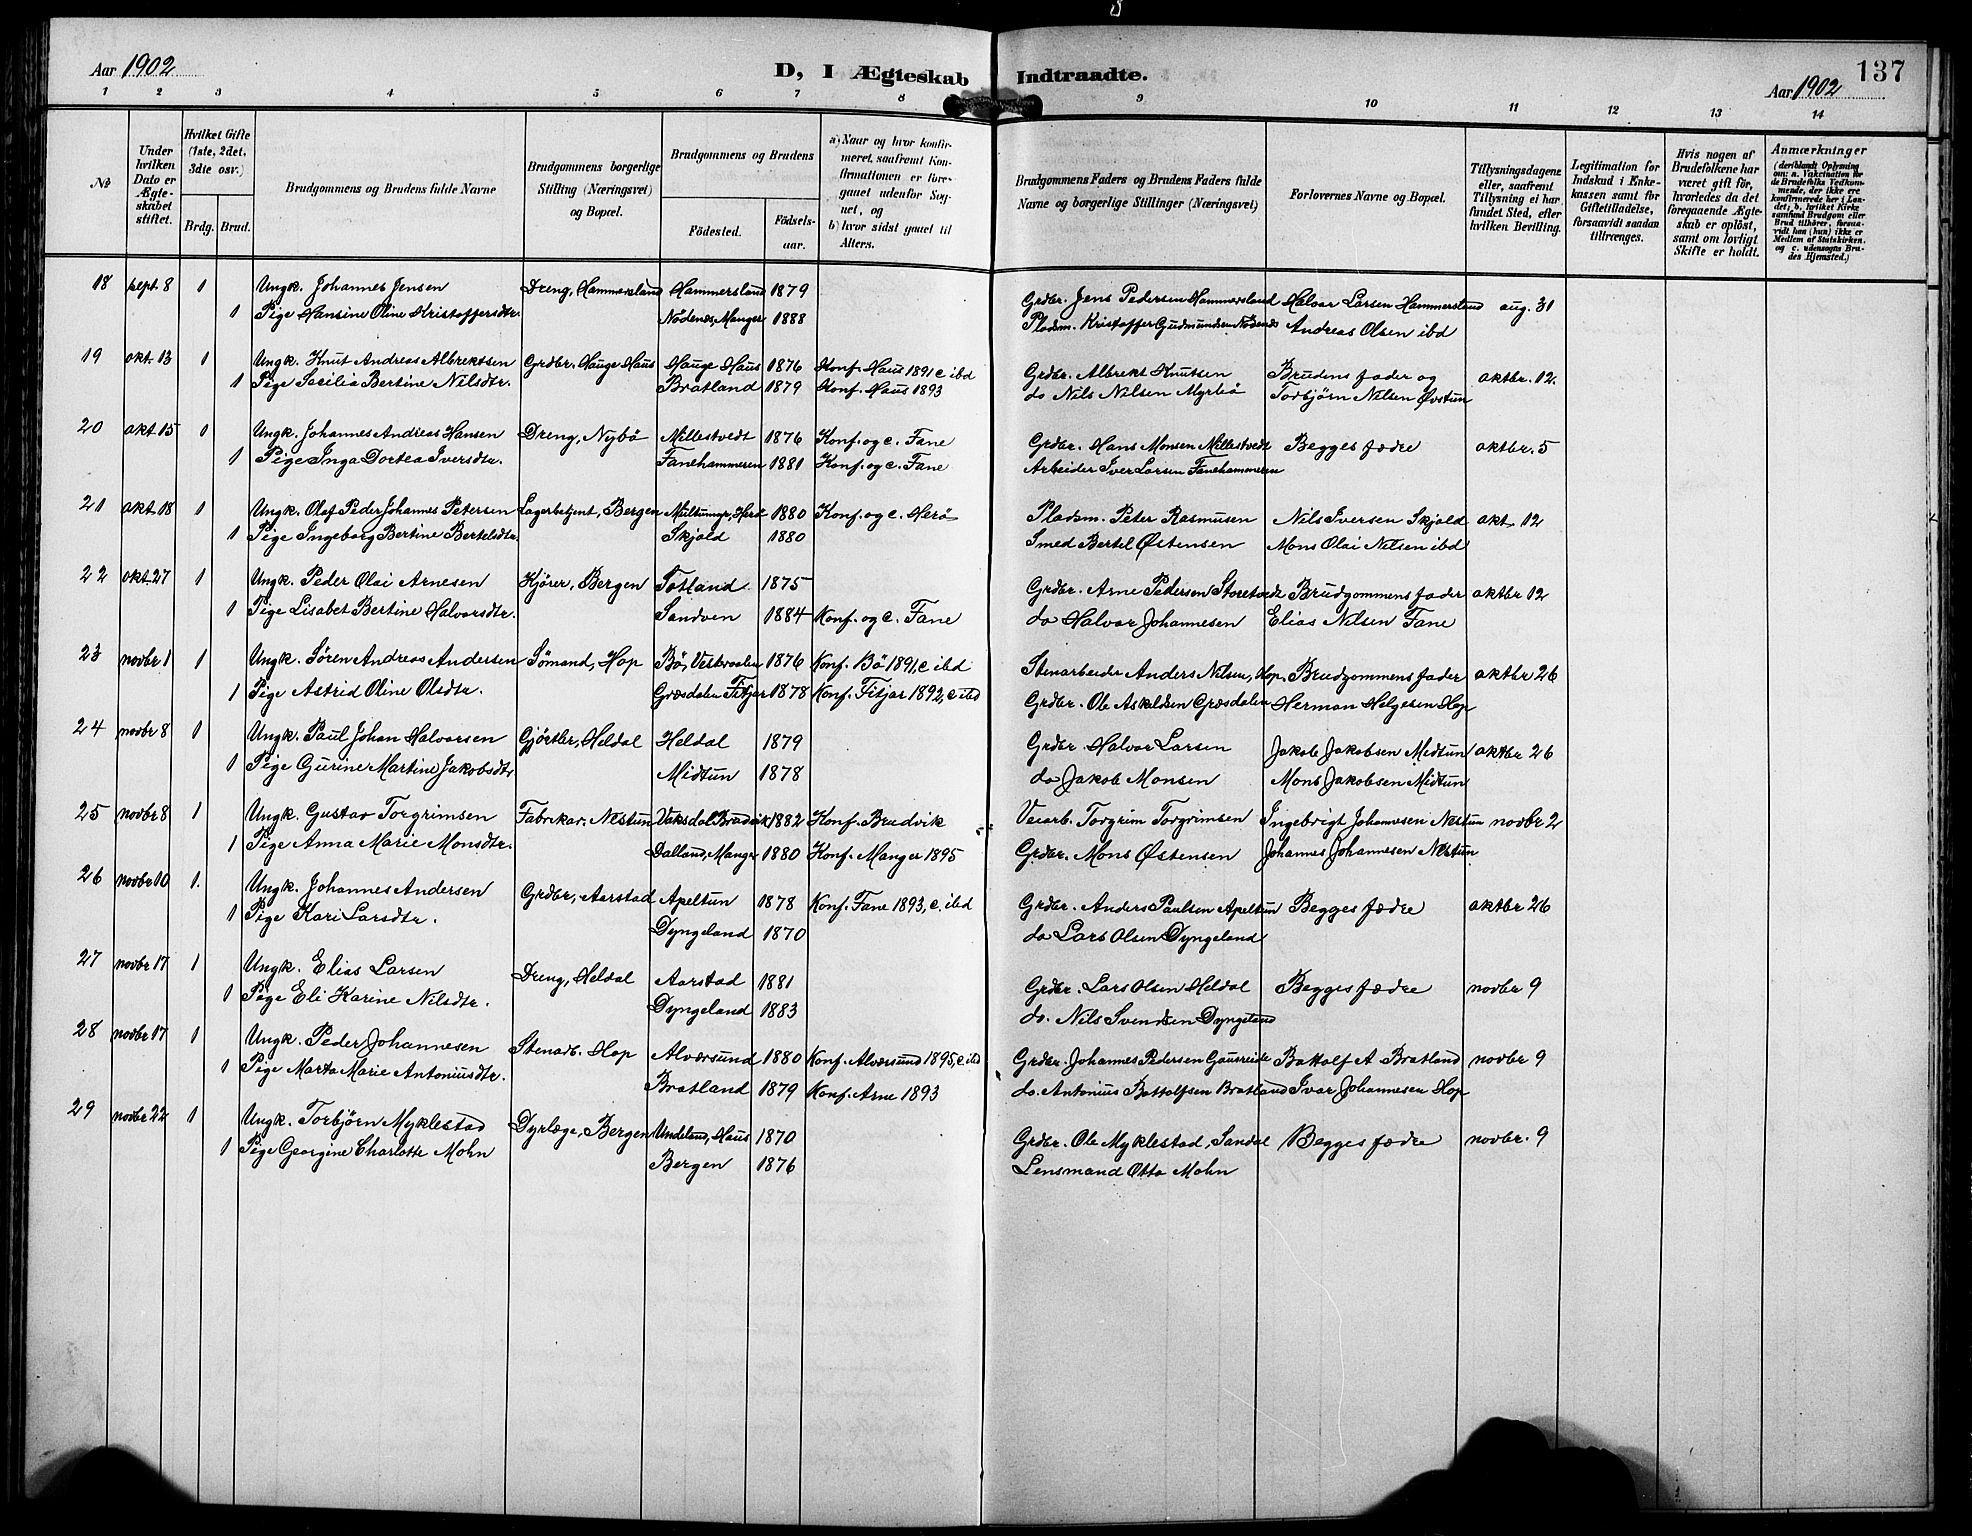 Aar 1902
D, I Ægteskab Indtraadte.
137
Aar 1902
1 2 3 4 5 6 7 8 9 10 11 12 13 14
No
Under hvilken Dato er Ægteskabet stiftet.
Hvilket Gifte (1ste, 2det, 3die osv.)
Brdg. Brud.
Brudgommens og Brudens fulde Navne
Brudgommens borgerlige Stilling (Næringsvei) og Bopæl.
Brudgommens og Brudens
Fødested. Fødselsaar.
a) Naar og hvor konfirmeret, saafremt Konfirmationen er foregaaet udenfor Sognet, og
b) hvor sidst gaaet til Alters.
Brudgommens Faders og Brudens Faders fulde Navne og borgerlige Stillinger (Næringsvei)
Forlovernes Navne og Bopæl.
Tillysningsdagene eller, saafremt Tillysning ei har fundet Sted, efter hvilken Bevilling.
Legitimation for Indskud i Enkekassen samt for Giftetilladelse, forsaavidt saadan tiltrænges.
Hvis nogen af Brudefolkene har været gift før, hvorledes da det foregaaende Ægteskab er opløst, samt om lovligt Skifte er holdt.
Anmærkninger
(deriblandt Oplysning om: a. Vaccination for de Brudefolks Vedkommende, der ikke ere konfirmerede her i Landet; b. hvilket Kirkesamfund Brudgom eller Brud tilhører, forsaavidt han (hun) ikke er Medlem af Statskirken. og c. udensogns Brudes Hjemsted.)
18 sept. 8 1 Ungk. Johannes Jensen Dreng, Hammersland Hammersland 1879 Grdbr. Jens Pedersen Hammersland Halvar Larsen Hammersland aug. 31
1 Pige Hansine Oline Kristoffersdtr. Nödenes, Manger 1888 Pladsm. Kristoffer Gudmundsen Nödenes Andreas Olsen ibd
19 okt. 13 1 Ungk. Knut Andreas Albrektsen Grdbr. Hauge Haus Hauge Haus 1876 Konf. Haus 1891 c ibd Grdbr. Albrekt Knutsen Brudens fader og oktbr. 12.
1 Pige Sacilia Bertine Nilsdtr. Bratland 1879 Konf. Haus 1893 do Nils Nilsen Myrbö Torbjørn Nilsen Øvstun
20 okt 15 1 Ungk. Johannes Andreas Hansen Dreng, Nybö Millestvedt 1876 Konf. og c. Fane Grdbr. Hans Monsen Millestvedt Begges fædre oktbr. 5
1 Pige Inga Dortea Iversdtr. Fanehammeren 1881 Konf. og c. Fane Arbeider Iver Larsen Fanehammeren
21 okt 18 1 Ungk. Olaf Peder Johannes Petersen Lagerbetjent, Bergen Herö 1880 Konf. og c. Herö Pladsm. Peter Rasmusen Nils Iversen Skjold okt. 12
1 Pige Ingeborg Bertine Bertelsdtr Skjold 1880 Smed Bertel Østensen Mons Olai Nilsen ibd
22 okt. 27 1 Ungk. Peder Olai Arnesen Kjörer, Bergen Totland 1875 Grdbr. Arne Pedersen Storetvedt Brudgommens fader oktbr 12
1 Pige Lisabet Bertine Halvorsdtr. Sandven 1884 Konf. og c. Fane do Halvor Johannesen Elias Nilsen Fane
23 novbr 1 1 Ungk. Sören Andreas Andersen Sömand, Hop Bö, Vesteraalen 1876 Konf. Bö 1891, c ibd Stenarbeider Anders Nilsen, Hop. Brudgommens fader oktbr 26
1 Pige Astrid Oline Olsdtr. Græsdalen Fitjar 1878 Konf. Fitjar 1892, c ibd Grdbr. Ole Askildsen Græsdalen Herman Helgesen Hop
24 novbr 8 1 Ungk. Paul Johan Halvorsen Gjörtler, Heldal Heldal 1879 Grdbr. Halvor Larsen Jakob Jakobsen Midtun oktbr 26
1 Pige Gurine Martine Jakobsdtr Midtun 1878 do Jakob Monsen Mons Jakobsen Midtun
25 novbr 8 1 Ungk. Gustav Torgrimsen Fabrikar. Nestun Vaksdal Bruvik 1882 Konf. Brudvik Veiarb. Torgrim Torgrimsen Ingebrigt Johannesen Nestun novbr 2
1 Pige Anna Marie Monsdtr. Dalland, Manger 1880 Konf. Manger 1895 Grdbr. Mons Østensen Johannes Johannesen Nestun
26 novbr 10 1. Ungk. Johannes Andersen Grdbr, Aarstad Apeltun 1878 Konf. Fane 1893, c. ibd Grdbr. Anders Paulsen Apeltun Begges fædre oktbr 26
1 Pige Kari Larsdtr. Dyngeland 1870 do Lars Olsen Dyngeland
27 novbr 17 1 Ungk. Elias Larsen Dreng, Heldal Aarstad 1881 Grdbr. Lars Olsen Heldal Begges fædre novbr 9
1 Pige Eli Karine Nilsdtr. Dyngeland 1883 do. Nils Svendsen Dyngeland
28 novbr 17 1 Ungk. Peder Johannesen Stenarb. Hop Alværsund 1880 Konf. Alværsund 1895, c ibd Grdbr. Johannes Pedersen Gausreide Battolf A Bratland novbr 9
1 Pige Marta Marie Antoniusdtr. Bratland 1879 Konf. Arne 1893 do. Antonius Battolfsen Bratland Ivar Johannesen Hop
29 novbr 22 1 Ungk. Torbjörn Myklestad Dyrlæge, Bergen Undeland, Haus 1870 Grdbr. Ole Myklestad, Sandal Begges fædre novbr. 9
1 Pige Georgine Charlotte Mohn Bergen 1876 Lensmand Otto Mohn